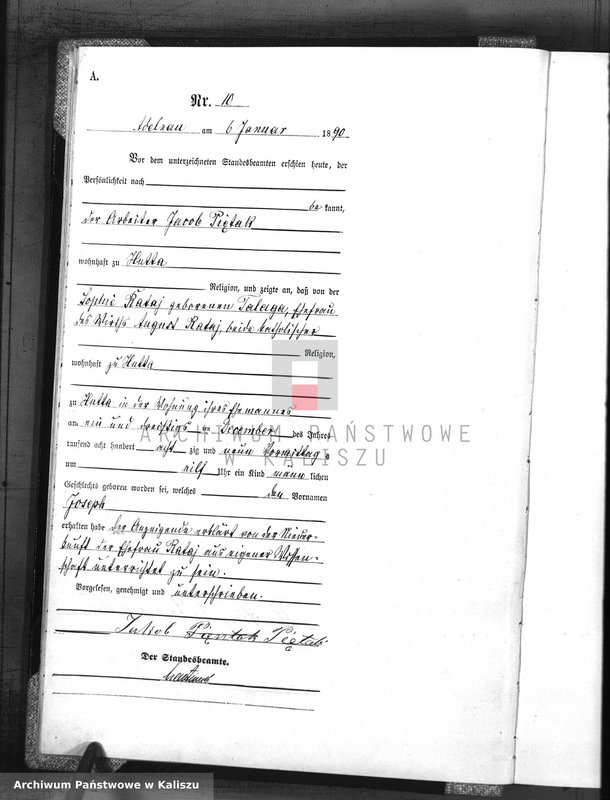 A.
Nr. 10
Adelnau am 6 Januar 1890
Vor dem unterzeichneten Standesbeamten erschien heute, der
Persönlichkeit nach
bekannt,
der Arbeiter Jacob Piętak
wohnhaft zu Hutta
Religion, und zeigte an, daß von der
Sophie Rataj geborenen Talaga, Ehefrau
des Wirths August Rataj, beide katholischer
Religion,
wohnhaft zu Hutta
zu Hutta in der Wohnung ihres Ehemannes
am ein und dreißigs ten December des Jahres
tausend acht hundert acht zig und neun Vormittags
um eilf Uhr ein Kind männ lichen
Geschlechts geboren worden sei, welches den Vornamen
Joseph
erhalten habe der Anzeigende erklärt von der Nieder-
kunft der Ehefrau Rataj aus eigener Wissen-
schaft unterrichtet zu sein.
Vorgelesen, genehmigt und unterschrieben.
Jakob Piętak
Der Standesbeamte.
ARCHIWUM PAŃSTWOWE
W KALISZU
Archiwum Państwowe w Kaliszu